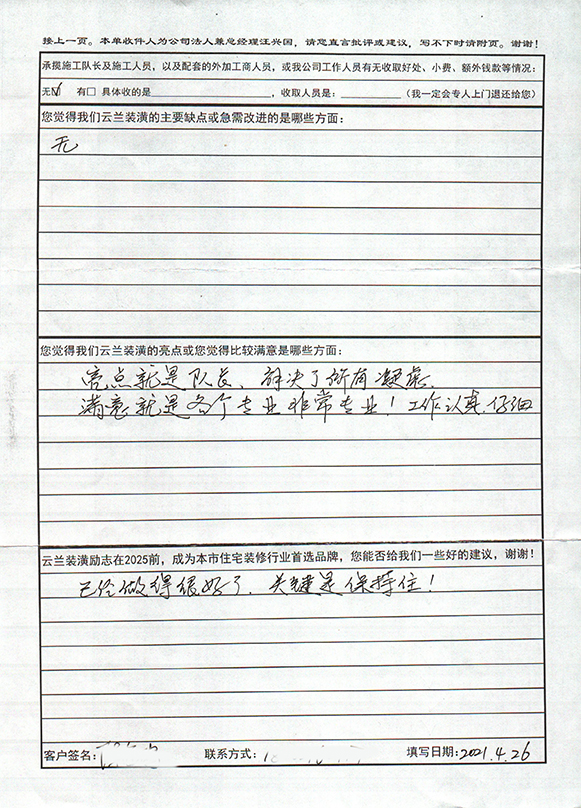 接上一页。本单收件人为公司法人兼总经理汪兴国，请您直言批评或建议，写不下时请附页。谢谢！
承揽施工队长及施工人员，以及配套的外加工商人员，或我公司工作人员有无收取好处、小费、额外钱款等情况：
无☑ 有□ 具体收的是＿＿＿＿，收取人员是：＿＿＿＿（我一定会专人上门退还给您）
您觉得我们云兰装潢的主要缺点或急需改进的是哪些方面：
无
您觉得我们云兰装潢的亮点或您觉得比较满意是哪些方面：
亮点就是队长、解决了所有凝虑.
满意就是各个专业非常专业！工作认真仔细
云兰装潢励志在2025前，成为本市住宅装修行业首选品牌，您能否给我们一些好的建议，谢谢！
已经做得很好了、关键是保持住！
客户签名： 联系方式： 填写日期：2021.4.26